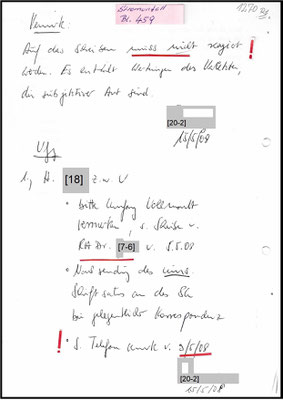 Stromentall
Bl. 459
1270
Vermerk
Auf das Schreiben muss nicht reagiert
werden. Es enthält Wertungen des Verletzten,
die subjektiver Art sind.
[20-2]
15/5/08
Vfg
1, H. [18] z.w.V
• bitte Umfang Vollmacht
vermerken, s. Schreiben v.
RA Dr. [7-6] v. 8.5.08
• Nachsendung des
Schriftsatzes an das
bei gelegentlicher Korrespondenz
• S. Telefonvermerk v. 9/5/08
[20-2]
15/5/08